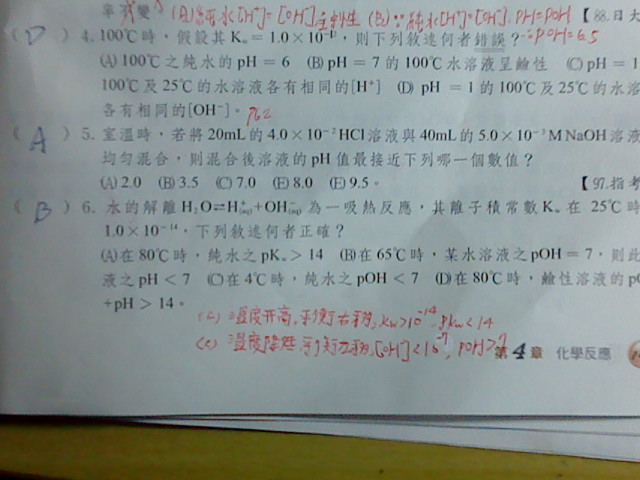 率不變 (A)純水[H⁺]=[OH⁻] (B)∵純水[H⁺]=[OH⁻], pH=pOH 【88.日大
(D) 4. 100℃時,假設其Kw=1.0×10⁻,則下列敘述何者錯誤? ∴pOH=6.5
(A) 100℃之純水的pH=6 (B) pH=7的100℃水溶液呈鹼性 (C) pH=1
100℃及25℃的水溶液各有相同的[H⁺] (D) pH=1的100℃及25℃的水溶
各有相同的[OH⁻]。 P62
(A) 5. 室溫時,若將20mL的4.0×10⁻²HCl溶液與40mL的5.0×10⁻³M NaOH溶液
均勻混合,則混合後溶液的pH值最接近下列哪一個數值?
(A) 2.0 (B) 3.5 (C) 7.0 (E) 8.0 (E) 9.5。 【97.指考
(B) 6. 水的解離H₂O⇌H⁺(aq)+OH⁻(aq)為一吸熱反應,其離子積常數Kw在25℃時
1.0×10⁻¹⁴,下列敘述何者正確?
(A)在80℃時,純水之pKw>14 (B)在65℃時,某水溶液之pOH=7,則此
液之pH<7 (C)在4℃時,純水之pOH<7 (D)在80℃時,鹼性溶液的pO
+pH>14。
溫度升高,平衡右移,Kw>10⁻¹⁴,pKw<14
(C) 溫度降低,平衡左移,[OH⁻]<10⁻⁷,pOH>7
第4章 化學反應